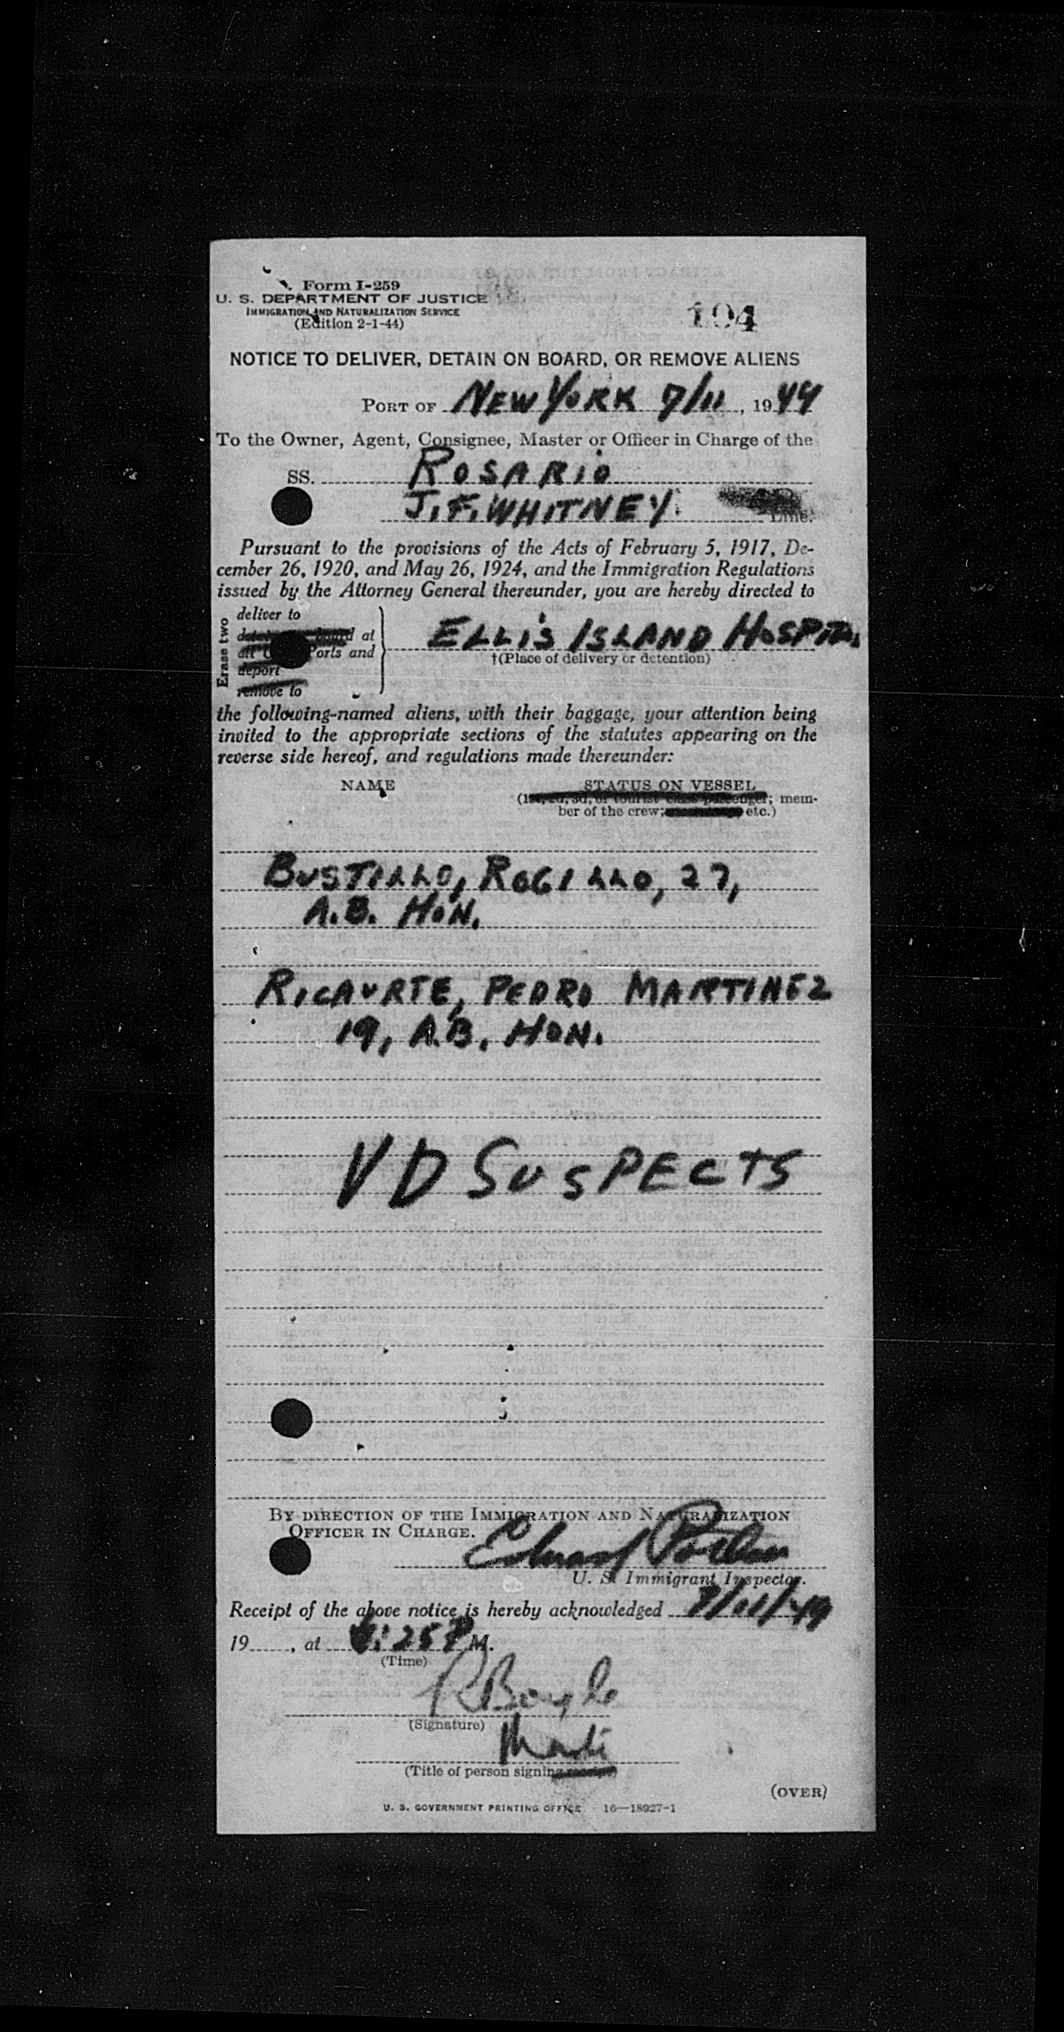 Form I-259
U. S. DEPARTMENT OF JUSTICE
IMMIGRATION AND NATURALIZATION SERVICE
(Edition 2-1-44)
194
NOTICE TO DELIVER, DETAIN ON BOARD, OR REMOVE ALIENS
PORT OF NEW YORK 7/11, 1944
To the Owner, Agent, Consignee, Master or Officer in Charge of the
SS. ROSARIO
J. F. WHITNEY. Line.
Pursuant to the provisions of the Acts of February 5, 1917, De-
cember 26, 1920, and May 26, 1924, and the Immigration Regulations
issued by the Attorney General thereunder, you are hereby directed to
Erase two
deliver to
board at
all Ports and
deport
remove to
ELLIS ISLAND HOSPITAL
†(Place of delivery or detention)
the following-named aliens, with their baggage, your attention being
invited to the appropriate sections of the statutes appearing on the
reverse side hereof, and regulations made thereunder:
NAME STATUS ON VESSEL
(1st, 2d, 3d, or tourist class passenger; mem-
ber of the crew; etc.)
BUSTILLO, ROGILLO, 27,
A.B. HON.
RICAURTE, PEDRO MARTINEZ
19, A.B. HON.
VD SUSPECTS
BY DIRECTION OF THE IMMIGRATION AND NATURALIZATION
OFFICER IN CHARGE.
Edward
U. S. Immigrant Inspector.
Receipt of the above notice is hereby acknowledged 7/11/44
19 , at :25 P M.
(Time)
R Boyle
(Signature)
(Title of person signing receipt)
(OVER)
U. S. GOVERNMENT PRINTING OFFICE 16—18927-1